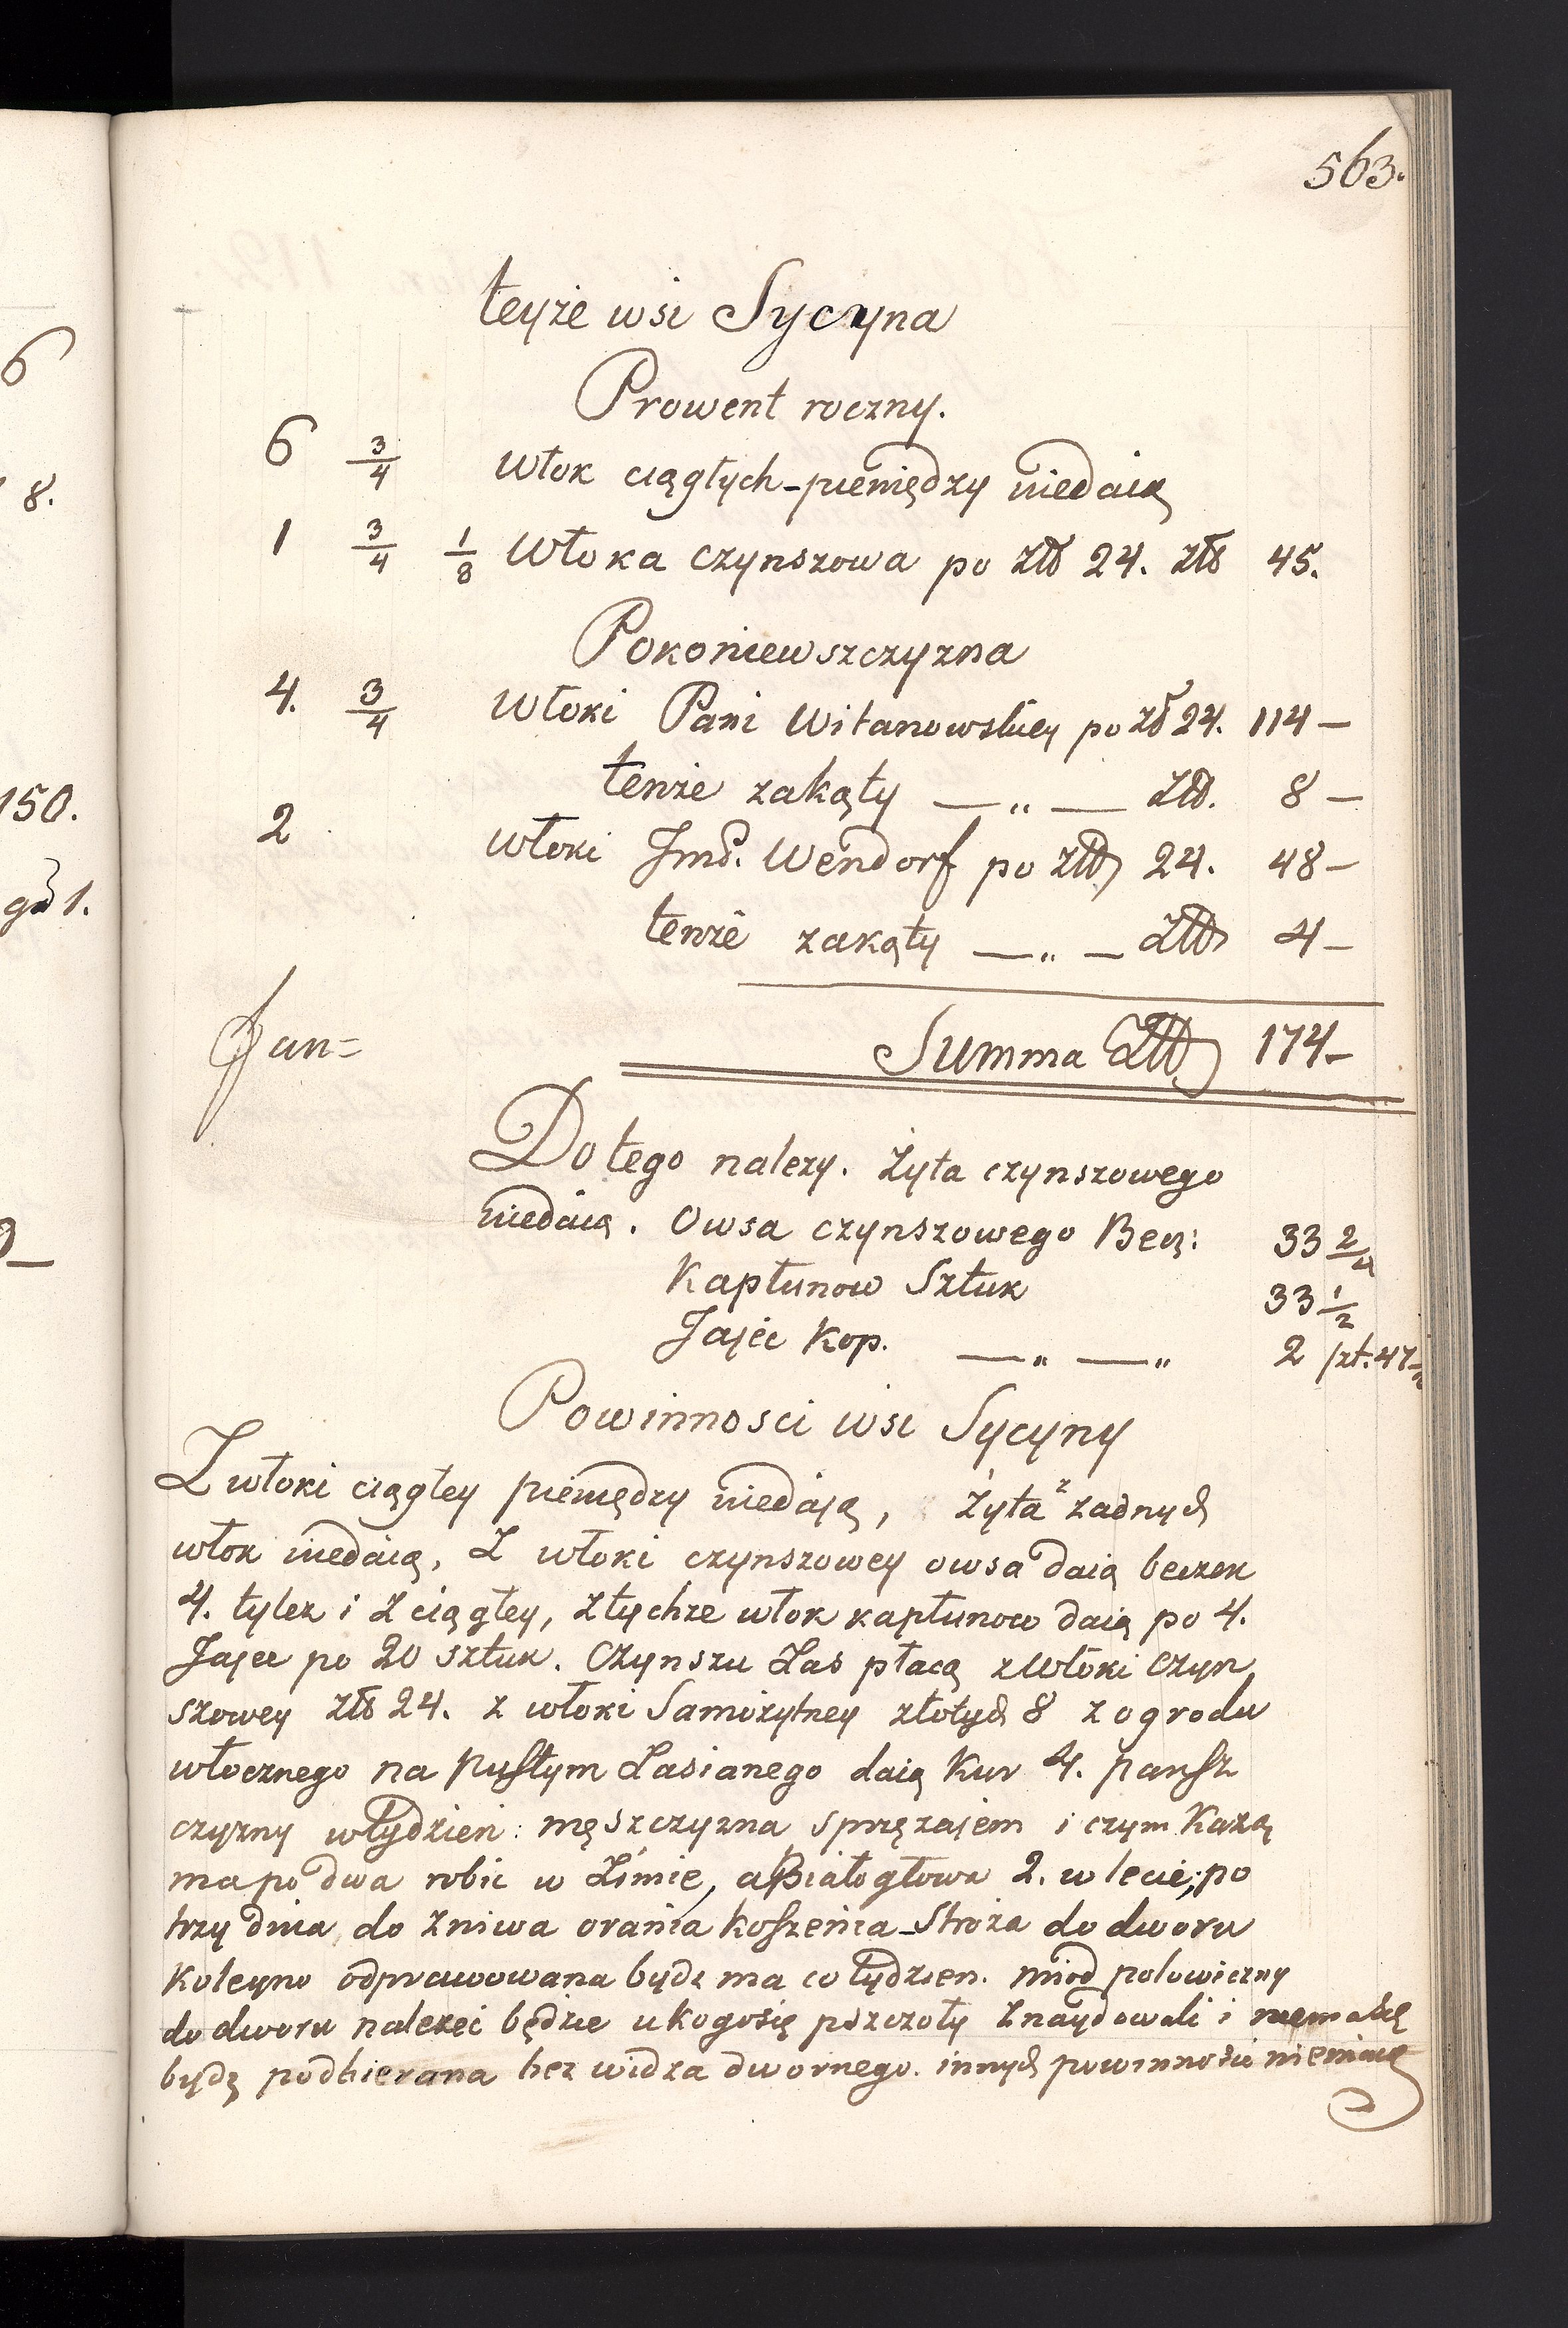 563.
teyże wsi Sycyna
Prowent roczny.
6 3/4 włok ciągłych - pieniędzy niedaią
1 3/4 1/8 Włoka czynszowa po złł 24. złł 45.
Pokoniewszczyzna
4. 3/4 włoki Pani Witanowskiey po zł 24. 114 —
tenże zakąty — „ — złł. 8 —
2 włoki Jmć. Wendorf po złł 24. 48 —
tenże zakąty — „ — złł 4 —
Summa złł 174 —
Do tego nalezy. Żyta czynszowego
niedaią. Owsa czynszowego Becz: 33 2/4
Kapłunow Sztuk 33 1/2
Jajec Kop. — „ — „ 2 szt. 47
Powinnosci wsi Sycyny
Z włoki ciągłey pieniędzy niedają, żyta z zadnych
włok niedaią, Z włoki czynszowey owsa daią beczek
4. tylez i z ciągłey, z tychze włok kapłunow daią po 4.
Jajec po 20 sztuk. Czynszu Zas płacą z włoki czyn
szowey złł 24. z włoki Samożytney złotych 8 z ogrodu
włocznego na pustym Zasianego daią Kur 4. pansz
czyzny w tydzień: męszczyzna sprzężajem i czym Każą
ma po dwa robic w Zimie, a Białogłowa 2. w lecie; po
trzy dnia, do żniwa orania koszenia - Stroża do dworu
Koleyno odprawowana bydz ma co tydzien. miod połowiczny
do dworu nalezeć będzie u kogo się pszczoły znaydowali i niemaią
bydz podbierana bez widza dwornego. innych powinności niemaią
6
8.
150.
1.